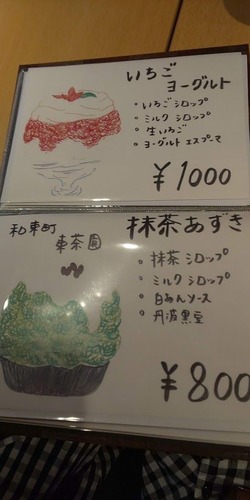 いちご
ヨーグルト
・いちごシロップ
・ミルクシロップ
・生いちご
・ヨーグルトエスプーマ
¥1000
和束町
東茶園
抹茶あずき
。抹茶シロップ
。ミルクシロップ
。白あんソース
。丹波黒豆
¥800